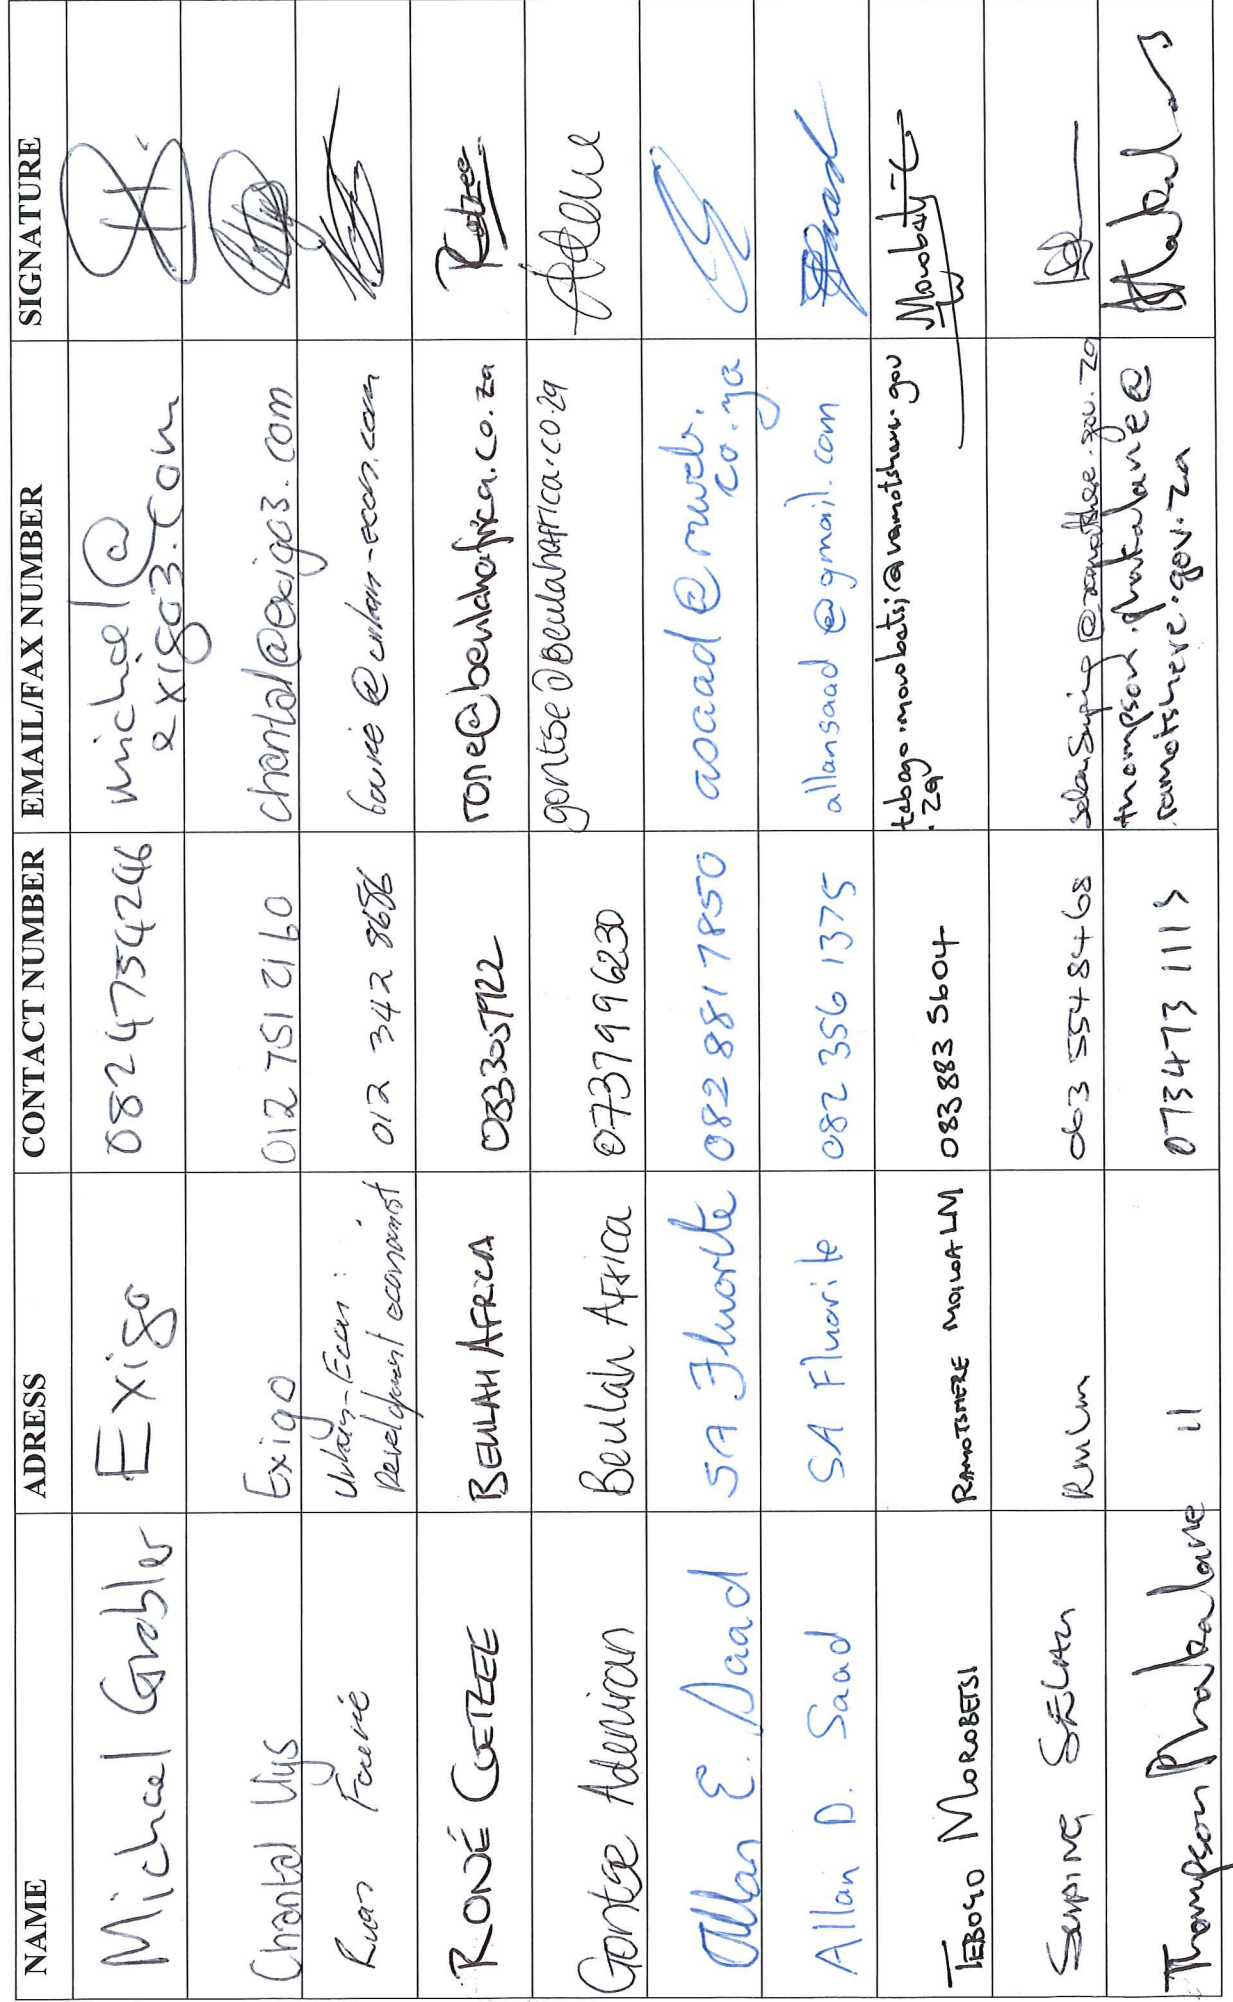 NAME ADRESS CONTACT NUMBER EMAIL/FAX NUMBER SIGNATURE
Michael Grobler Exigo 0824754246 michael@
exigo3.com
Chantal Uys Exigo 012 751 2160 chantal@exigo3.com
Ruan Fourié Urban-Econ: 012 342 8686 fourie@urban-econ.com
Development economist
RONÉ COETZEE BEULAH AFRICA 0833057922 rone@beulahafrica.co.za Coetzee
Gontse Adeniran Beulah Africa 0737996230 gontse@beulahafrica.co.za
Allan E. Saad SA Fluorite 082 881 7850 asaad@mweb.
co.za
Allan D. Saad SA Fluorite 082 356 1375 allansaad@gmail.com
TEBOGO MOROBETSI RAMOTSHERE MOILOA LM 083 883 5604 tebogo.morobetsi@ramotshere.gov
.za
RMLM 063 554 8468
Thompson Phakalane 11 073 473 1115 thompson.phakalane@
ramotshere.gov.za